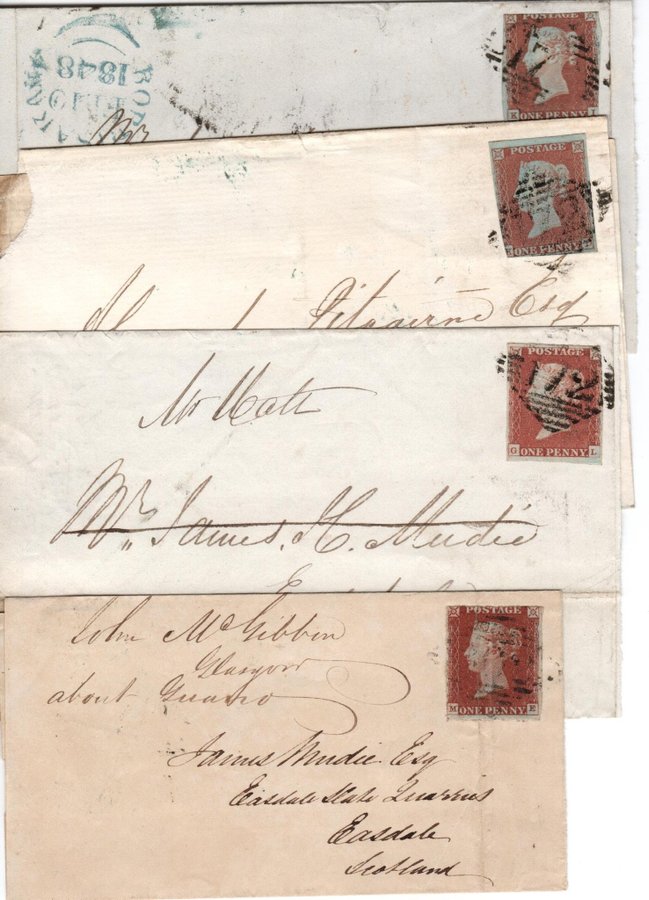 POSTAGE
K I
ONE PENNY
1848
Mr
POSTAGE
ONE PENNY
Esq
POSTAGE
172
G L
ONE PENNY
Mr
Mr. James H. Mudie
POSTAGE
M E
ONE PENNY
John McGibbon
Glasgow
about Guano
James Mudie Esq
Easdale Slate Quarries
Easdale
Scotland